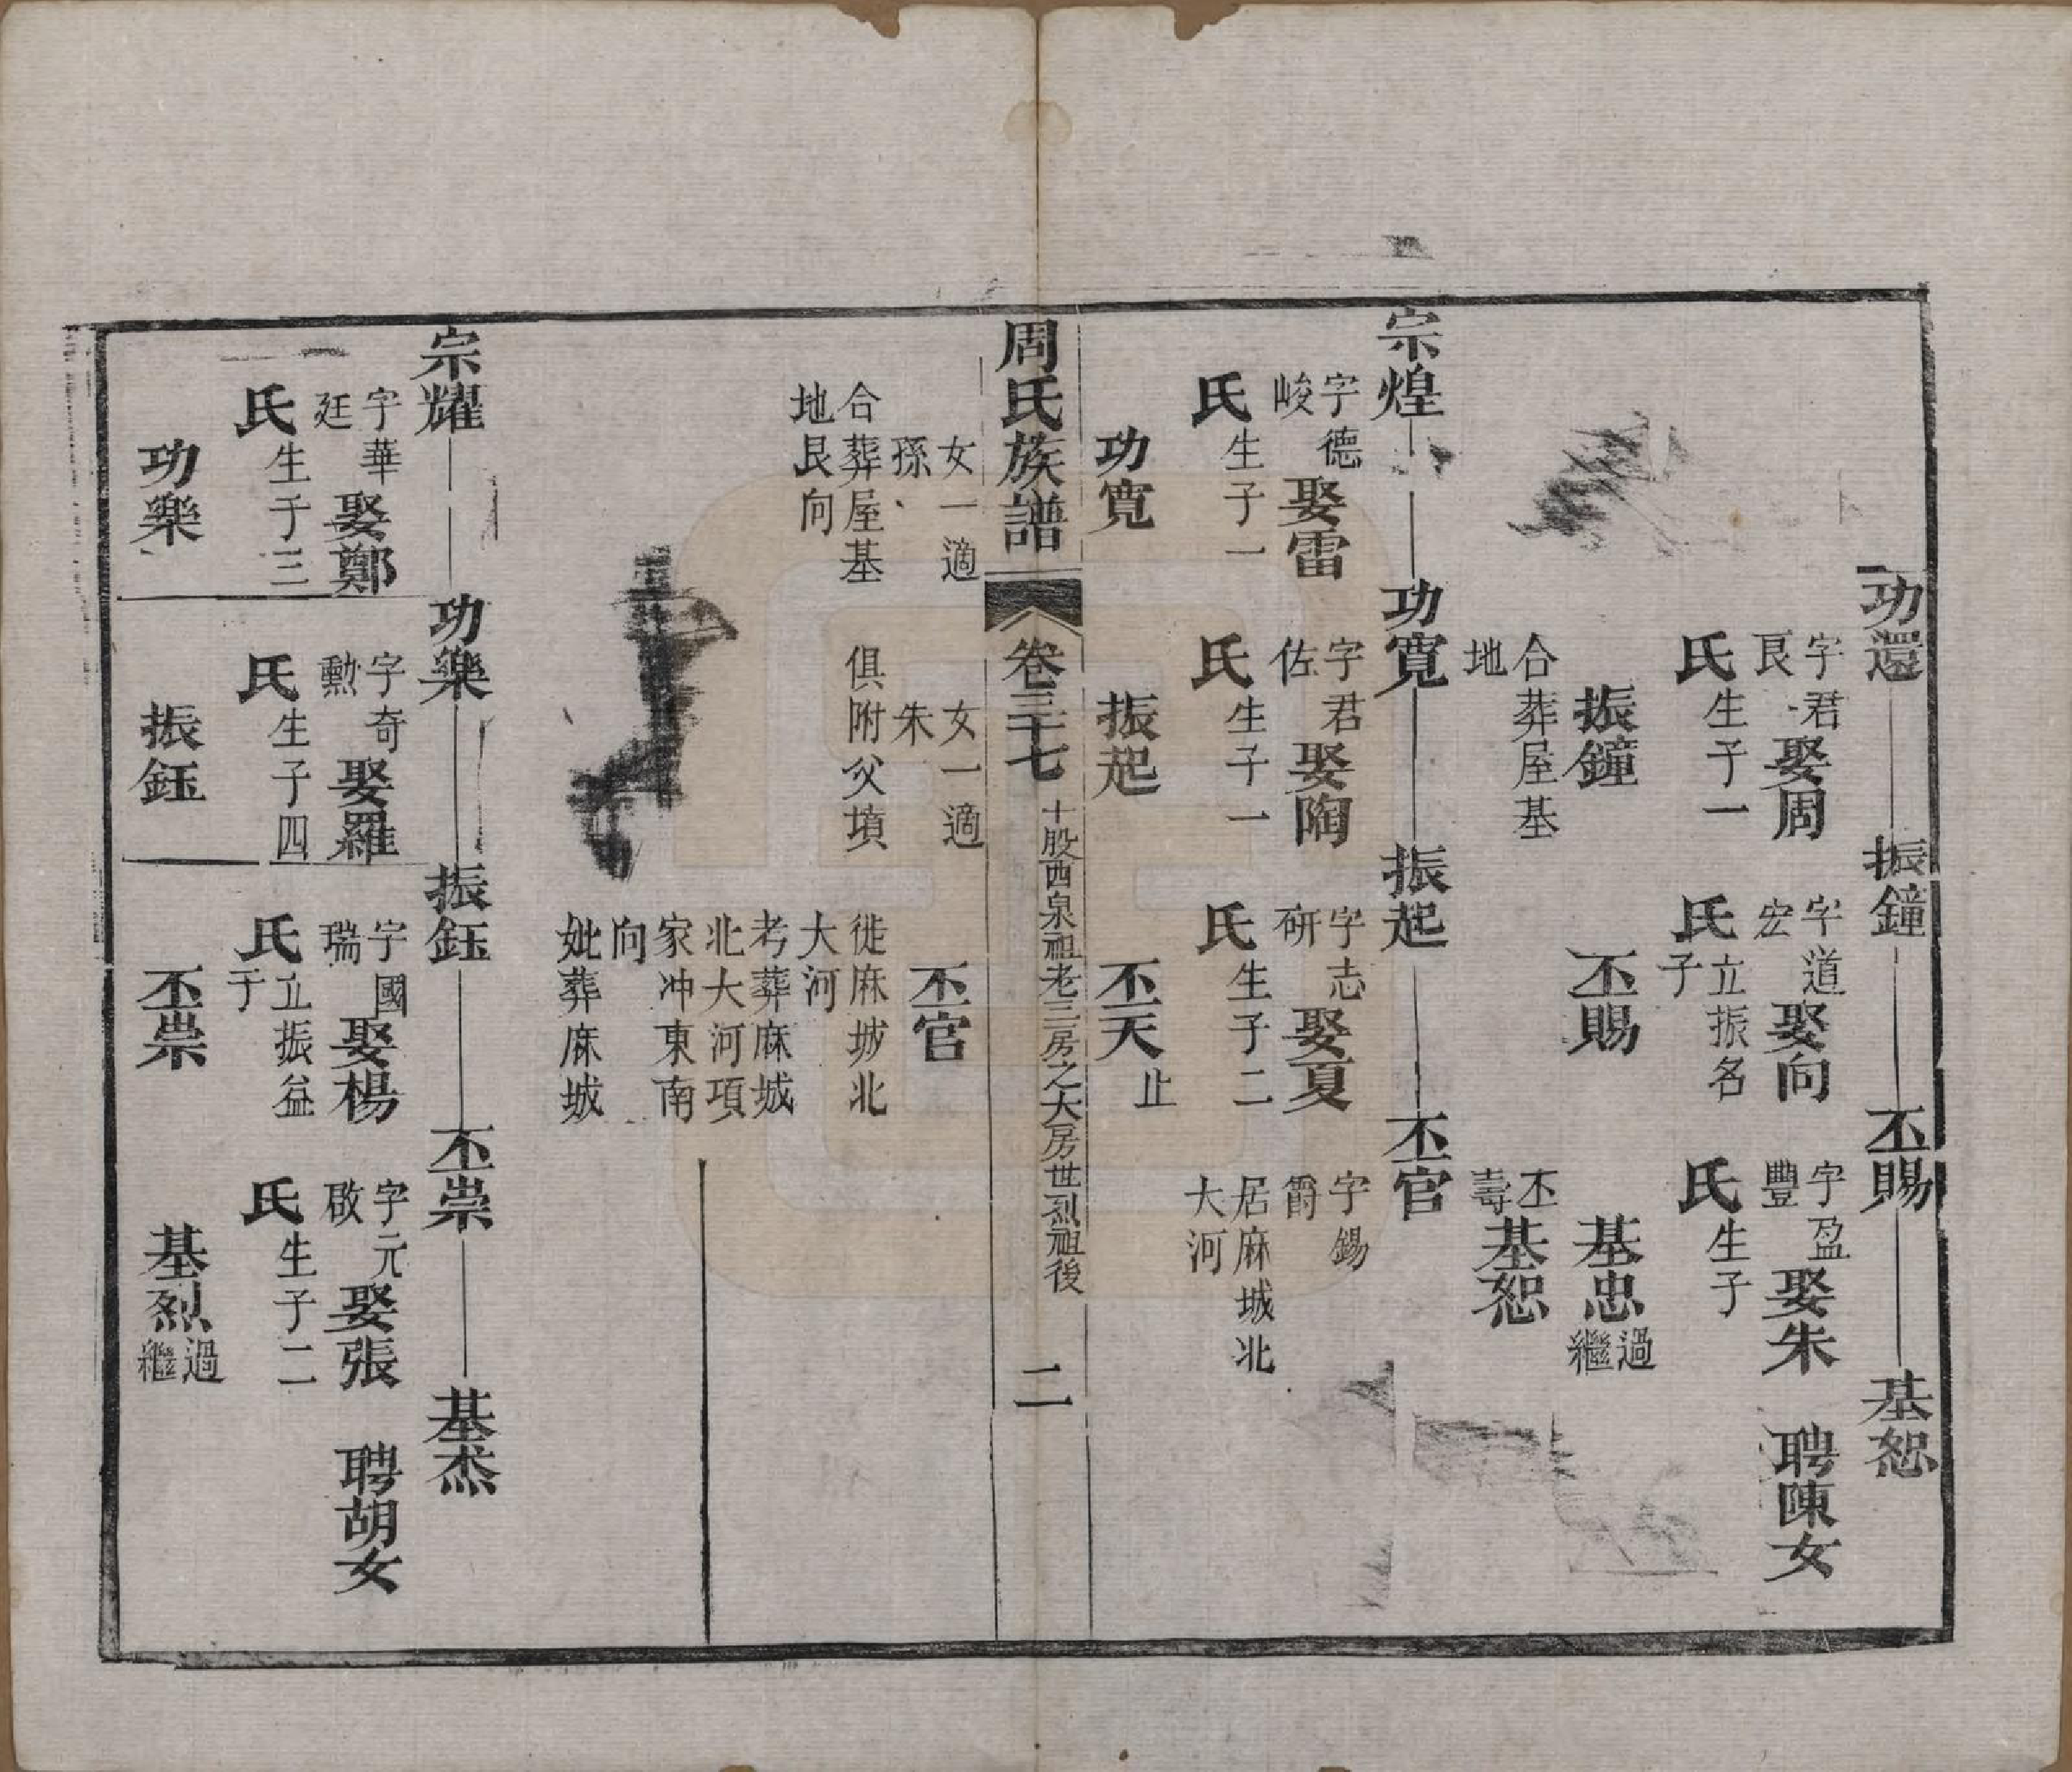 功還 振鐘 丕賜 基恕
字君 字道 字盈
艮 娶周 宏 娶向 豐 娶朱 聘陳女
氏生子一 氏立振名 氏生子
子
振鐘 丕賜 基忠過
繼
合葬屋基 丕
地 壽 基恕
宗煌 功寬 振起 丕官
字德 字君 字志 字錫
峻 娶雷 佐 娶陶 研 娶夏 爵
氏生子一 氏生子一 氏生子二 居麻城北
大河
功寬 振起 丕天止
周氏族譜 卷三十七 十股西泉祖老三房之大房世烈祖後 二
女一適 女一適 丕官
孫 朱
合葬屋基 俱附父墳 徙麻城北
地艮向 大河
考葬麻城
北大河項
家冲東南
向
妣葬麻城
宗耀 功樂 振鈺 丕崇 基杰
字華 字奇 字國 字元
廷 娶鄭 勲 娶羅 瑞 娶楊 啟 娶張 聘胡女
氏生子三 氏生子四 氏立振益 氏生子二
子
功樂 振鈺 丕崇 基烈過
繼